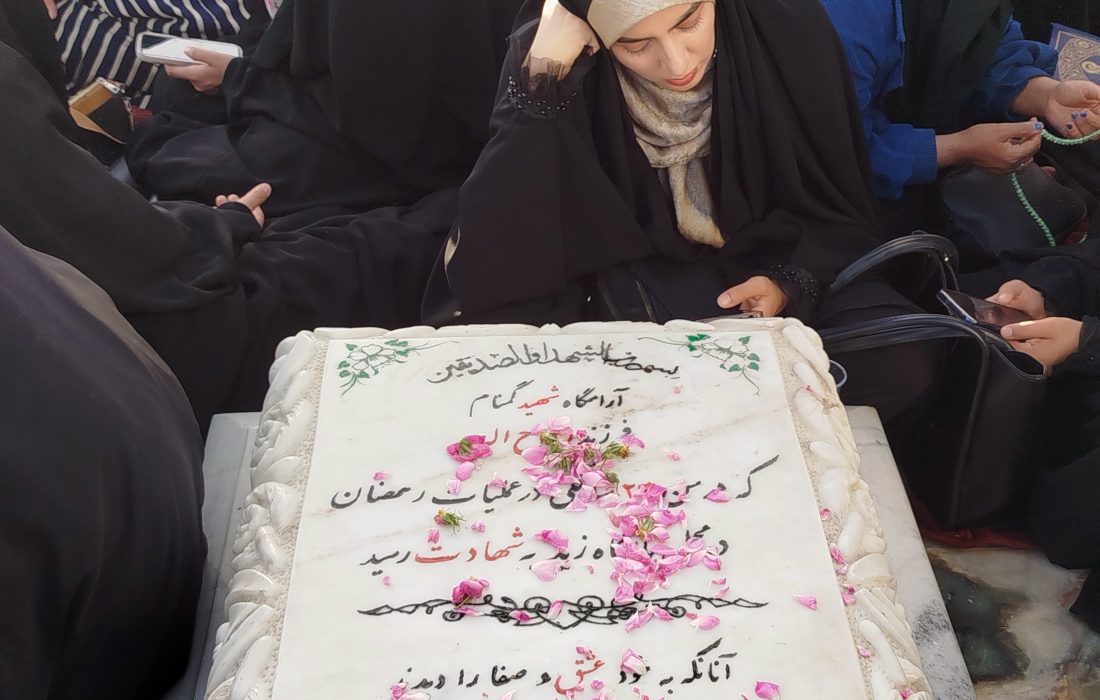 بسم رب الشهداء والصدیقین
آرامگاه شهید گمنام
فرزند روح ال
که در سن در عملیات رمضان
در پاسگاه زید به شهادت رسید
آنانکه به عشق و صفا را دیدند